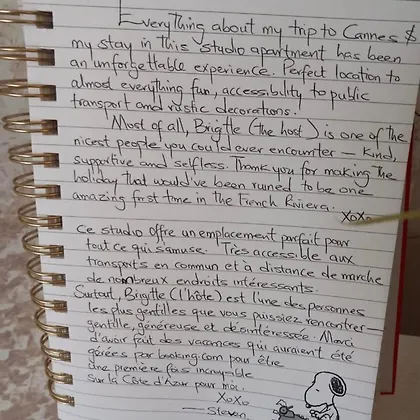 Everything about my trip to Cannes &
my stay in this studio apartment has been
an unforgettable experience. Perfect location to
almost everything fun, accessibility to public
transport and rustic decorations.
Most of all, Brigitte (the host) is one of the
nicest people you could ever encounter — kind,
supportive and selfless. Thank you for making the
holiday that would've been ruined to be one
amazing first time in the French Riviera.
XoXo
ce studio offre un emplacement parfait pour
tout ce qui s'amuse. Très accessible aux
transports en commun et à distance de marche
de nombreux endroits intéressants.
Surtout, Brigitte (l'hôte) est l'une des personnes
les plus gentilles que vous puissiez rencontrer —
gentille, généreuse et désintéressée. Merci
d'avoir fait des vacances qui auraient été
gérées par booking.com pour être
une première fois incroyable
sur la Côte d'Azur pour moi.
XoXo
— Steven.